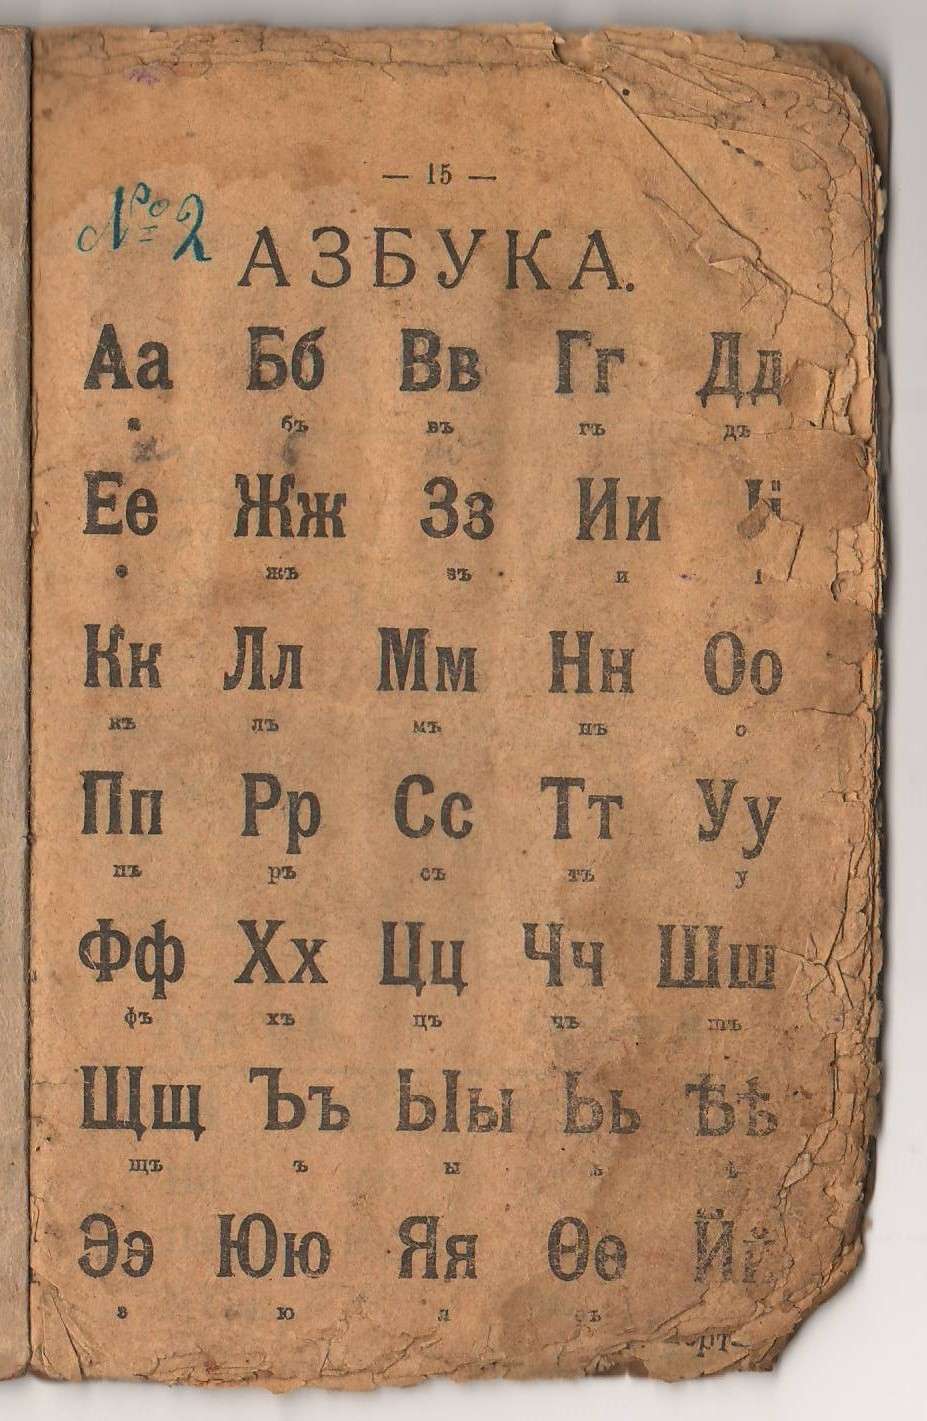 — 15 —
№ 2
АЗБУКА.
Аа Бб Вв Гг Дд
а бъ въ гъ дъ
Ее Жж Зз Ии Іі
е жъ зъ и і
Кк Лл Мм Нн Оо
къ лъ мъ нъ о
Пп Рр Сс Тт Уу
пъ ръ съ тъ у
Фф Хх Цц Чч Шш
фъ хъ цъ чъ шъ
Щщ Ъъ Ыы Ьь Ѣѣ
щъ ъ ы ь ѣ
Ээ Юю Яя Ѳѳ Йй
э ю я